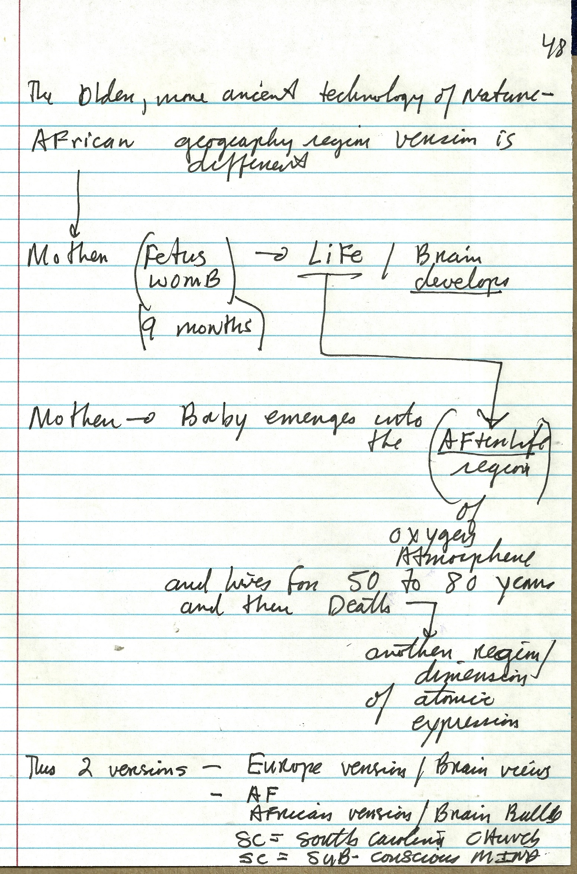 48
The Older, more ancient technology of Nature-
AFrican geography region version is
different
Mother (Fetus → LiFe / Brain
womB) develops
(9 months)
Mother → Baby emerges into
the (AFterlife
region)
of
oxygen
Atmosphere
and lives for 50 to 80 years
and then Death
another region/
dimension
of atomic
expression
Thus 2 versions - Europe version / Brain views
- AF
AFrican version / Brain
SC = South Carolina Church
SC = SuB-conscious MIND